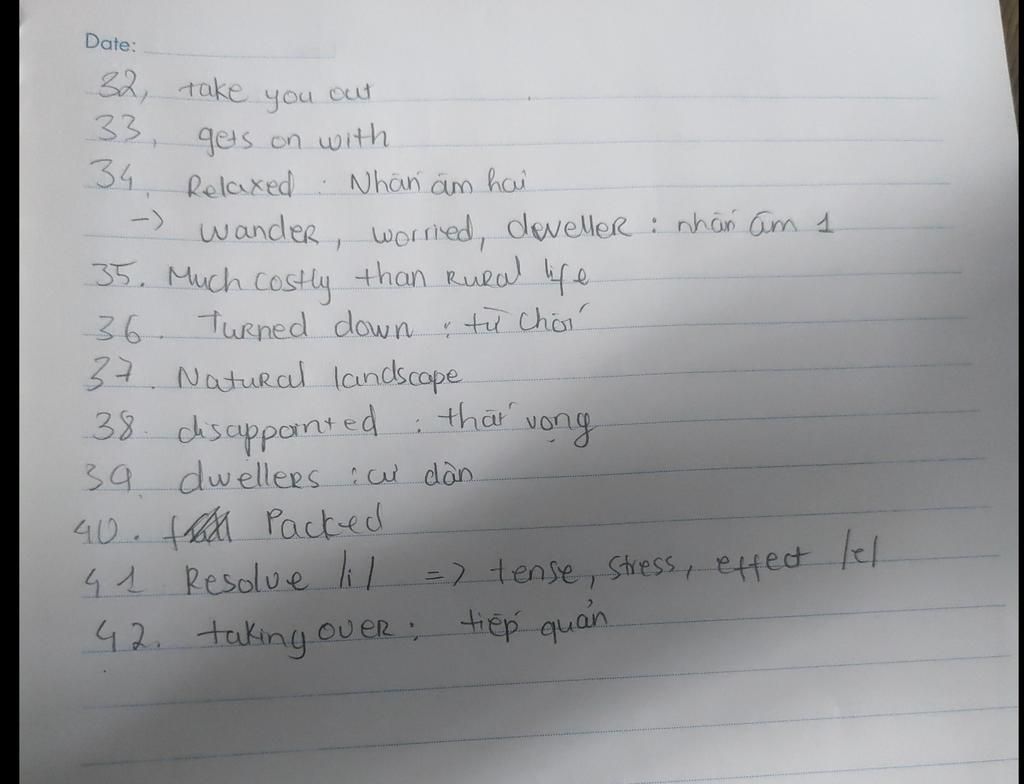 Date:
32, take you out
33, gets on with
34. Relaxed : Nhấn âm hai
-> wander, worried, deweller : nhấn âm 1
35. Much costly than rural life
36. Turned down : từ chối
37. Natural landscape
38. disappointed : thất vọng
39. dwellers : cư dân
40. Packed
41 Resolve /i/ => tense, stress, effect /e/
42. taking over : tiếp quản